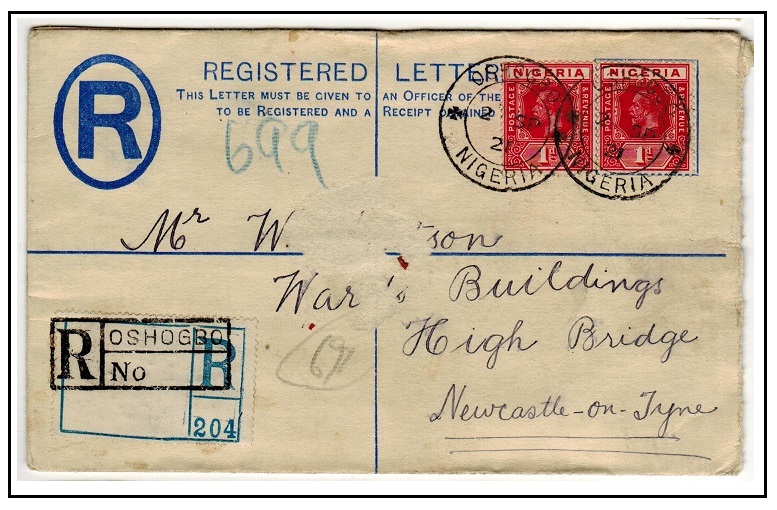 REGISTERED LETTER
THIS LETTER MUST BE GIVEN TO AN OFFICER OF THE
TO BE REGISTERED AND A RECEIPT
R
699
NIGERIA
POSTAGE & REVENUE
1d
NIGERIA
POSTAGE & REVENUE
1d
NIGERIA
NIGERIA
Mr W. son
Buildings
High Bridge
Newcastle-on-Tyne
R OSHOGBO
No
R
204